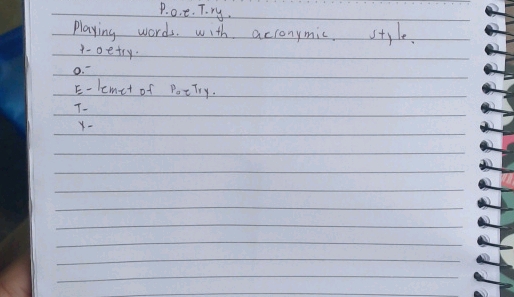 P.o.e.T.ry.
Playing words. with acronymic. style.
P-oetry.
O.-
E-lemet of PoeTry.
T-
Y-